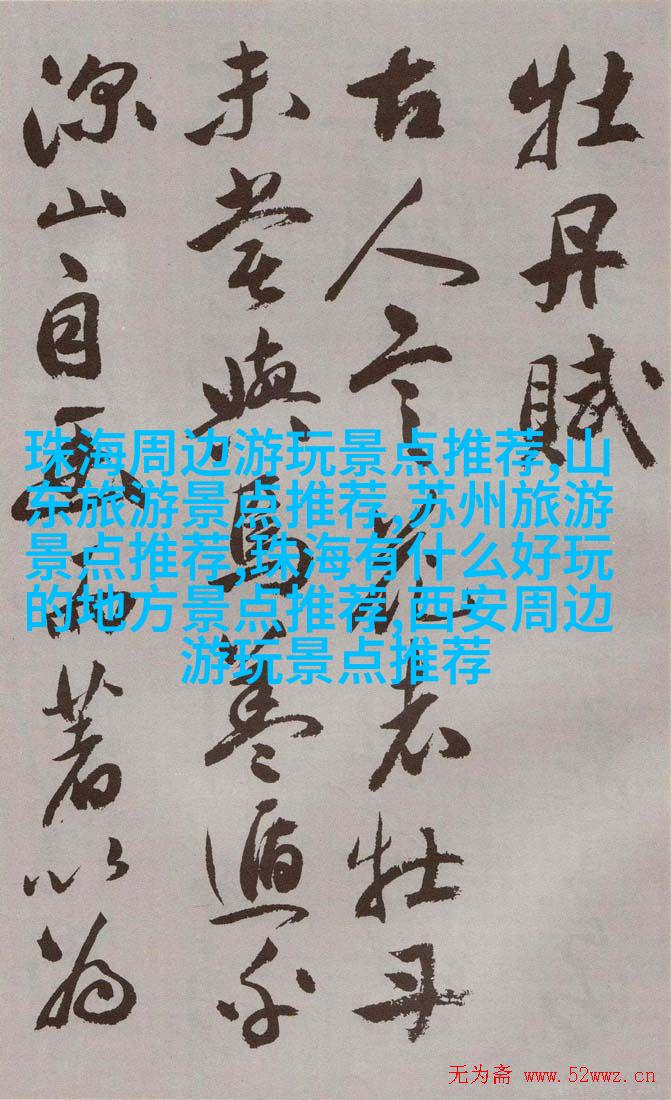 牡丹賦
古人言花者牡丹
未嘗與焉蓋遁乎
深山自幽而著以為
珠海周边游玩景点推荐,山
东旅游景点推荐,苏州旅游
景点推荐,珠海有什么好玩
的地方景点推荐,西安周边
游玩景点推荐
无为斋 www.52wwz.cn